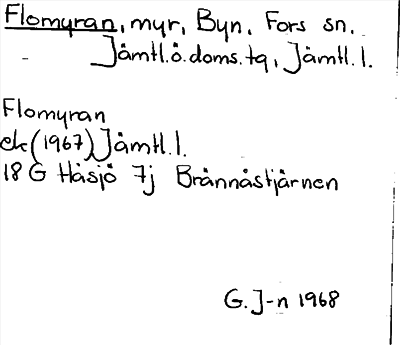 Flomyran, myr, Byn, Fors sn.
Jämtl.ö.doms.tg, Jämtl.l.
Flomyran
ek (1967) Jämtl.l.
18 G Håsjö 7j Brännåstjärnen
G.J-n 1968